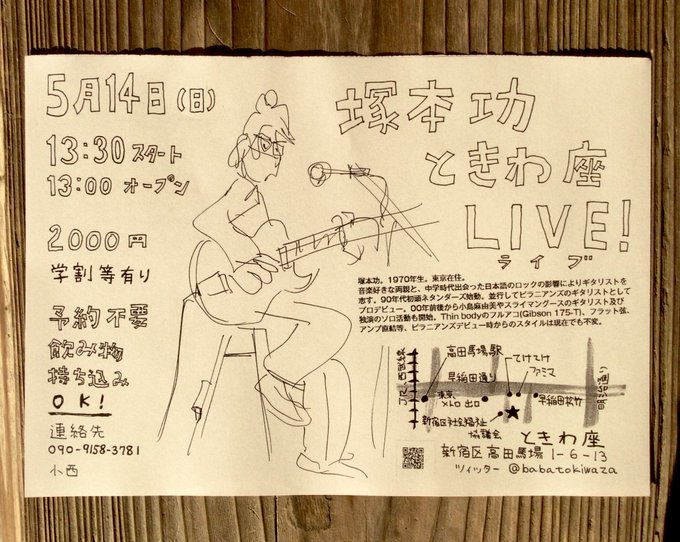 5月14日(日)
13:30 スタート
13:00 オープン
2000円
学割等有り
予約不要
飲み物
持ち込み
OK!
連絡先
090-9158-3781
小西
塚本功
ときわ座
LIVE!
ライブ
塚本功。1970年生。東京在住。
音楽好きな両親と、中学時代出会った日本語のロックの影響によりギタリストを
志す。90年代初頭ネタンダーズ始動。並行してピラニアンズのギタリストとして
プロデビュー。00年前後から小島麻由美やスライマングースのギタリスト及び
独演のソロ活動も開始。Thin bodyのフルアコ(Gibson 175-T)、フラット弦、
アンプ直結等、ピラニアンズデビュー時からのスタイルは現在でも不変。
JR・西武線
高田馬場駅
てけてけ
ファミマ
早稲田通り
明治通り
東京
メトロ 出口
早稲田松竹
新宿区社会福祉
協議会
ときわ座
新宿区高田馬場1-6-13
ツイッター @babatokiwaza